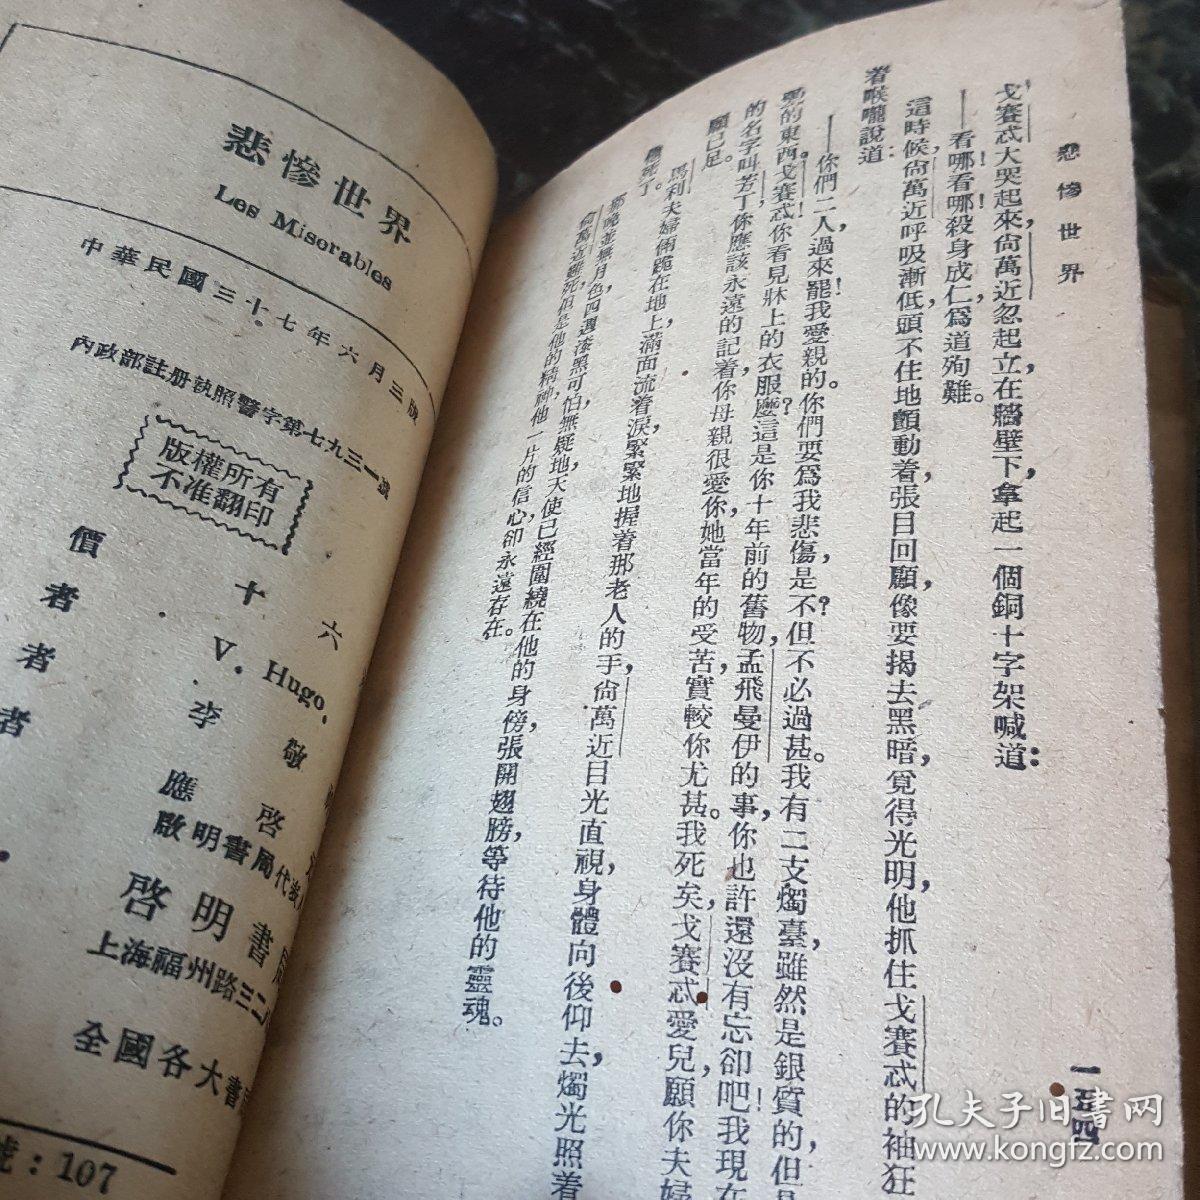 悲慘世界
一五四
戈賽忒大哭起來，尙萬近忽起立在牆壁下，拿起一個銅十字架喊道：
——看哪！看哪！殺身成仁，爲道殉難。
這時候，尙萬近呼吸漸低，頭不住地顫動着，張目回顧，像要揭去黑暗，覓得光明，他抓住戈賽忒的袖，狂
着喉嚨說道：
——你們二人，過來罷！我愛親的。你們要爲我悲傷，是不？但不必過甚。我有二支燭臺，雖然是銀質的，但是
的東西。戈賽忒！你看見牀上的衣服麽？這是你十年前的舊物，孟飛曼伊的事，你也許還沒有忘卻吧！我現在
的名字叫芳丁，你應該永遠的記着，你母親很愛你，她當年的受苦，實較你尤甚。我死矣，戈賽忒愛兒，願你夫婦
願已足。
馬利夫婦倆跪在地上，滿面流着淚，緊緊地握着那老人的手，尙萬近目光直視，身體向後仰去，燭光照着
死了。
那晚並無月色，四週漆黑可怕，無疑地天使已經圍繞在他的身傍，張開翅膀，等待他的靈魂。
尙萬近雖死，但是他的精神，他一片的信心，卻永遠存在。
悲慘世界
Les Misorables
中華民國三十七年六月三版
內政部註册執照警字第七九三一號
版權所有
不准翻印
價 十六
者 V. Hugo.
者 李敬
者 應啓
啟明書局代表
啓明書局
上海福州路三二
全國各大書
號：107
孔夫子旧书网
www.kongfz.com